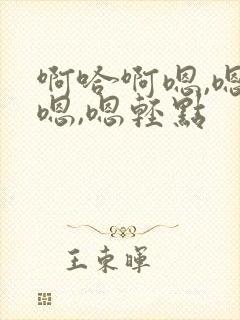 啊哈~啊嗯,嗯
嗯,嗯轻點
王東暉